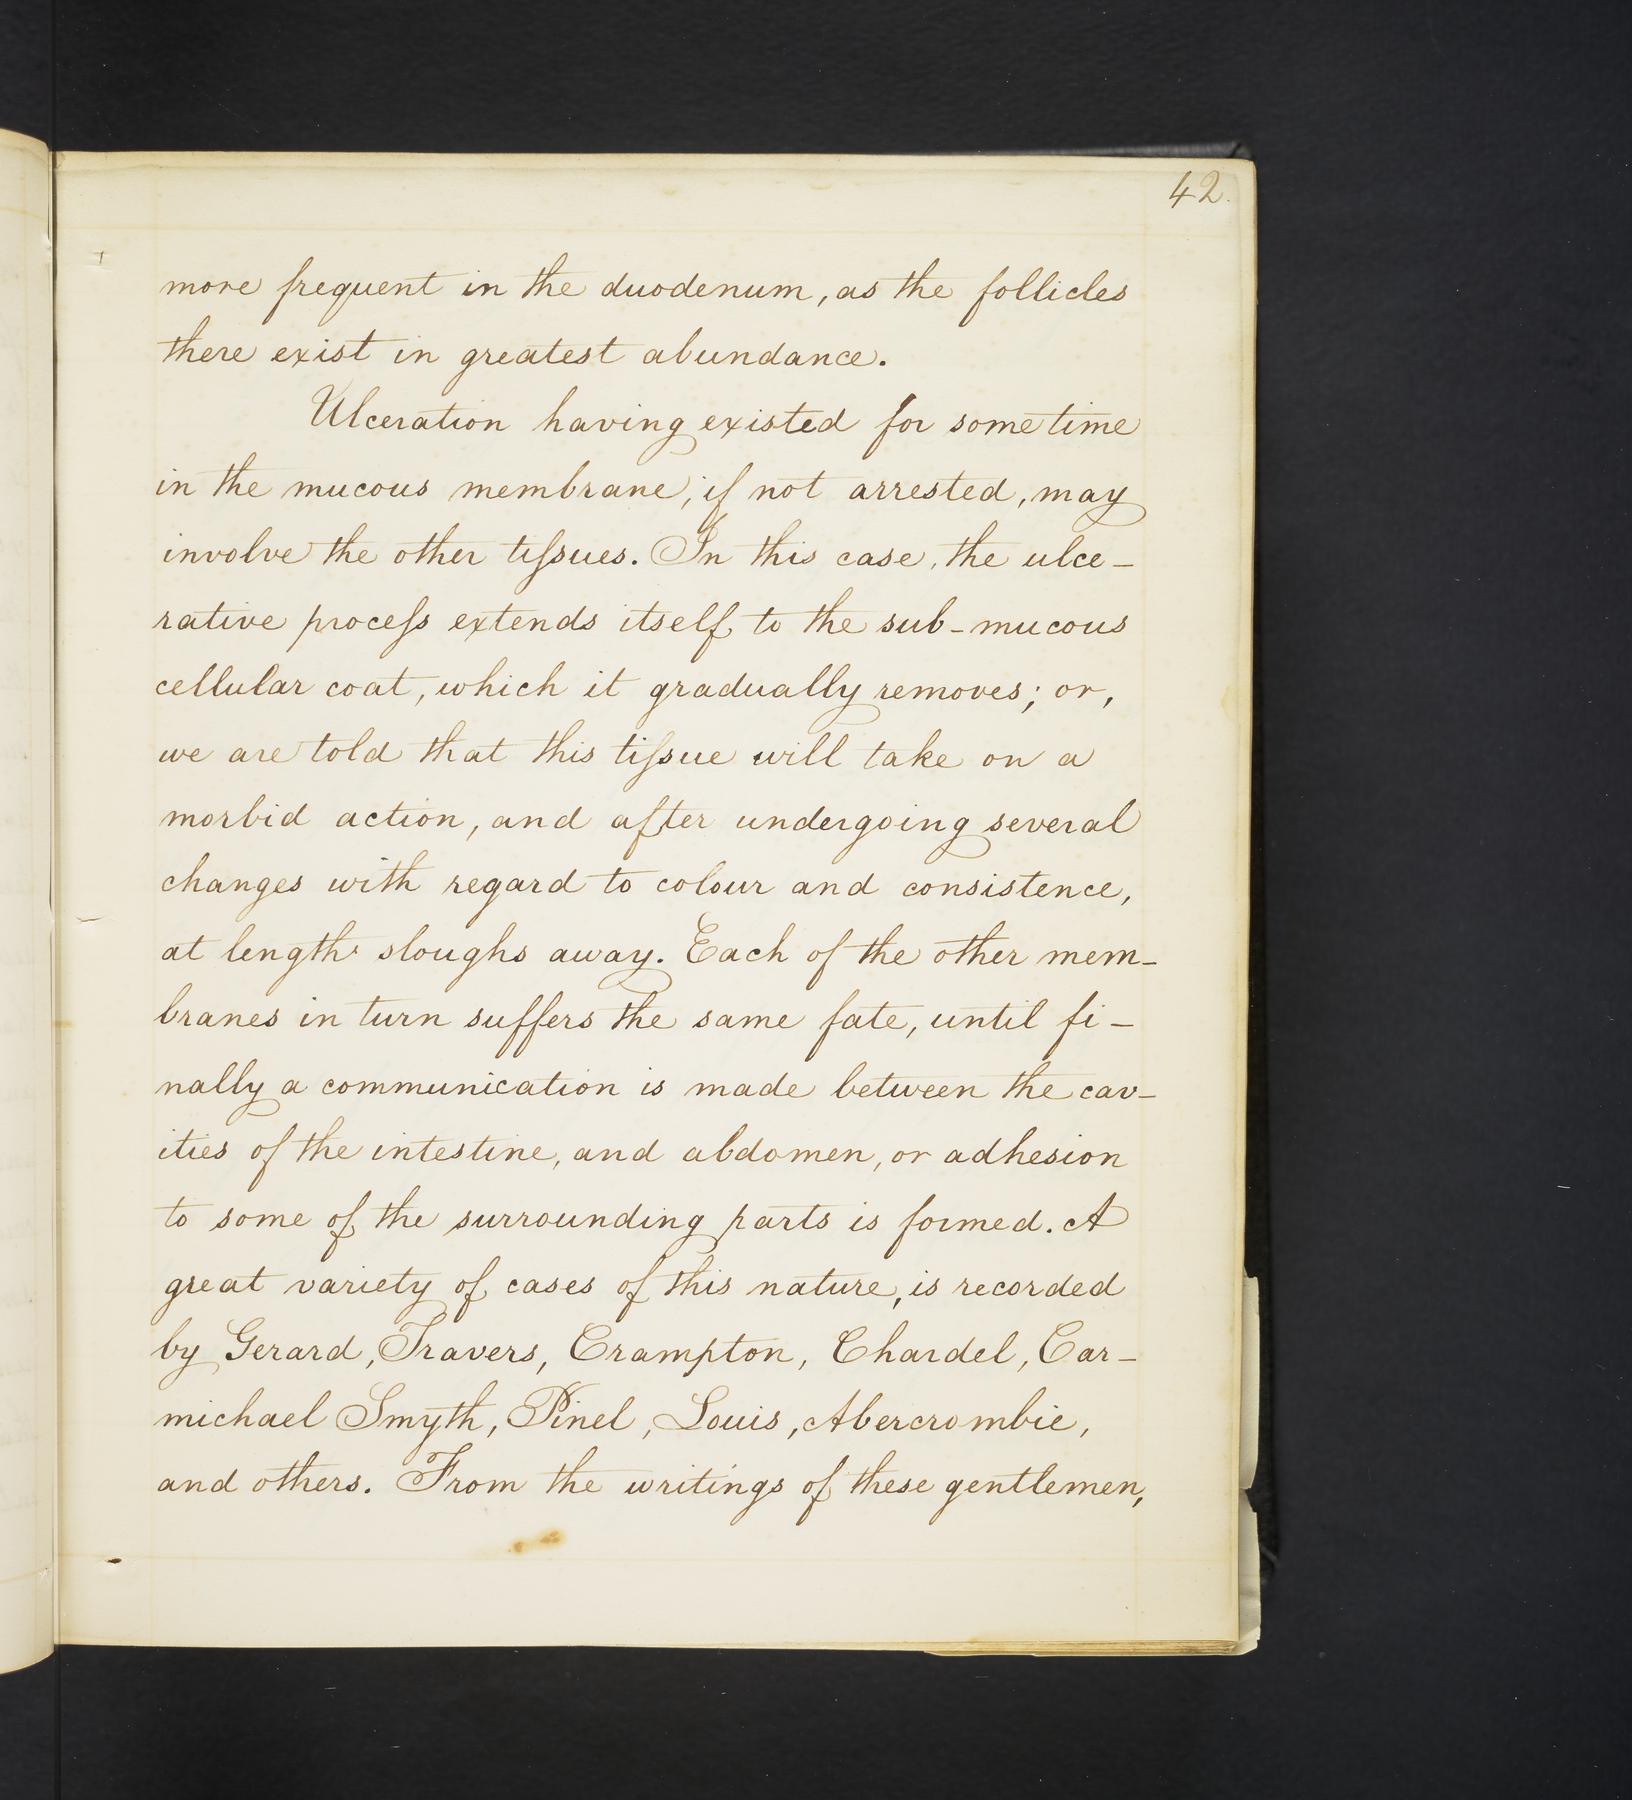 42.
more frequent in the duodenum, as the follicles
there exist in greatest abundance.
Ulceration having existed for some time
in the mucous membrane, if not arrested, may
involve the other tiſsues. In this case, the ulce-
rative proceſs extends itself to the sub-mucous
cellular coat, which it gradually removes; or,
we are told that this tiſsue will take on a
morbid action, and after undergoing several
changes with regard to colour and consistence,
at length sloughs away. Each of the other mem-
branes in turn suffers the same fate, until fi-
nally a communication is made between the cav-
ities of the intestine, and abdomen, or adhesion
to some of the surrounding parts is formed. A
great variety of cases of this nature, is recorded
by Gerard, Travers, Crampton, Chardel, Car-
michael Smyth, Pinel, Louis, Abercrombie,
and others. From the writings of these gentlemen,